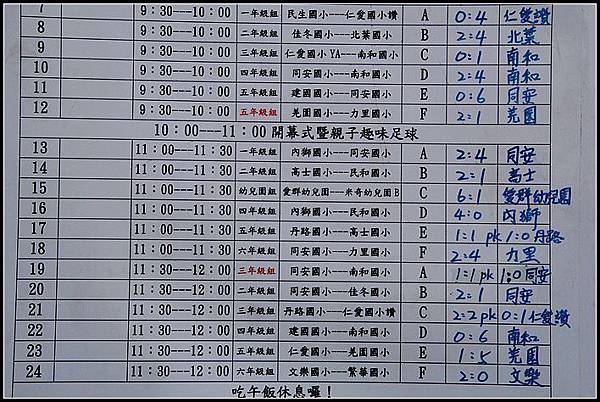 7 9:30---10:00 一年級組 民生國小---仁愛國小讚 A 0:4 仁愛讚
8 9:30---10:00 二年級組 佳冬國小---北葉國小 B 2:4 北葉
9 9:30---10:00 三年級組 仁愛國小YA---南和國小 C 0:1 南和
10 9:30---10:00 四年級組 同安國小---南和國小 D 2:4 南和
11 9:30---10:00 五年級組 建國國小---同安國小 E 0:6 同安
12 9:30---10:00 五年級組 羌園國小---力里國小 F 2:1 羌園
10:00---11:00 開幕式暨親子趣味足球
13 11:00---11:30 一年級組 內獅國小---同安國小 A 2:4 同安
14 11:00---11:30 二年級組 高士國小---民和國小 B 2:1 高士
15 11:00---11:30 幼兒園組 愛群幼兒園---米奇幼兒園B C 6:1 愛群幼兒園
16 11:00---11:30 四年級組 內獅國小---民和國小 D 4:0 內獅
17 11:00---11:30 五年級組 丹路國小---高士國小 E 1:1 pk 1:0 丹路
18 11:00---11:30 六年級組 同安國小---力里國小 F 2:4 力里
19 11:30---12:00 三年級組 同安國小---南和國小 A 1:1 pk 1:0 同安
20 11:30---12:00 二年級組 同安國小---佳冬國小 B 2:1 同安
21 11:30---12:00 三年級組 丹路國小---仁愛國小讚 C 2:2 pk 0:1 仁愛讚
22 11:30---12:00 四年級組 建國國小---南和國小 D 0:6 南和
23 11:30---12:00 五年級組 仁愛國小---羌園國小 E 1:5 羌園
24 11:30---12:00 六年級組 文樂國小---繁華國小 F 2:0 文樂
吃午飯休息囉！